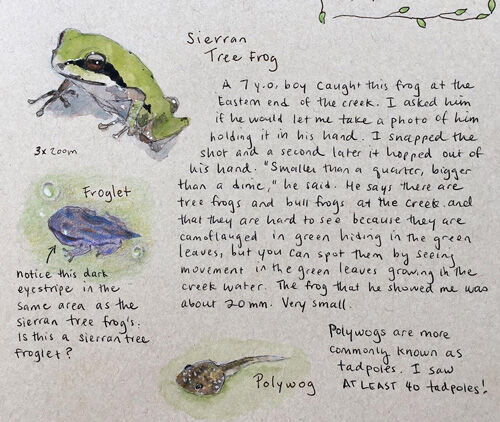 Sierran
Tree Frog
A 7 y.o. boy caught this frog at the
Eastern end of the creek. I asked him
if he would let me take a photo of him
holding it in his hand. I snapped the
shot and a second later it hopped out of
his hand. "Smaller than a quarter, bigger
than a dime," he said. He says there are
tree frogs and bull frogs at the creek and
that they are hard to see because they are
camoflauged in green hiding in the green
leaves, but you can spot them by seeing
movement in the green leaves growing in the
creek water. The frog that he showed me was
about 20mm. Very small.
3x zoom
Froglet
notice this dark
eyestripe in the
same area as the
sierran tree frog's.
Is this a sierran tree
froglet?
Polywog
Polywogs are more
commonly known as
tadpoles. I saw
AT LEAST 40 tadpoles!